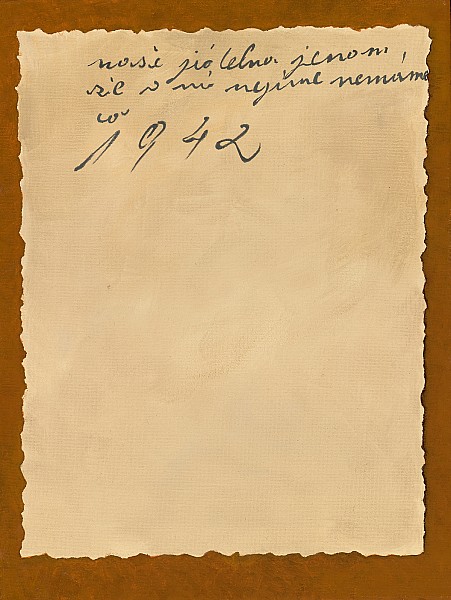 naše jídelna jenom
že v ní nejíme nemáme
co
1942